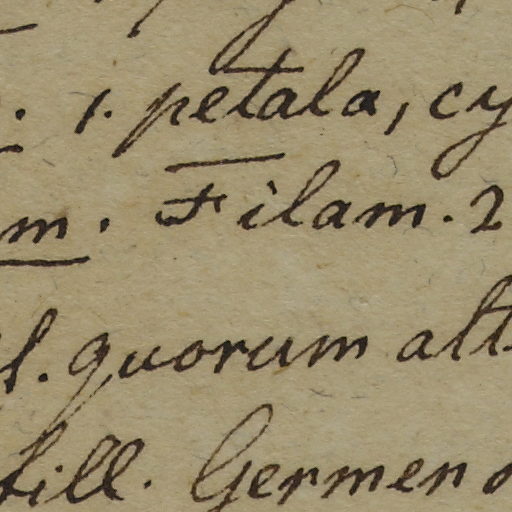 . 1. petala, cy
m. Filam. 2
l. quorum alt
till. Germen